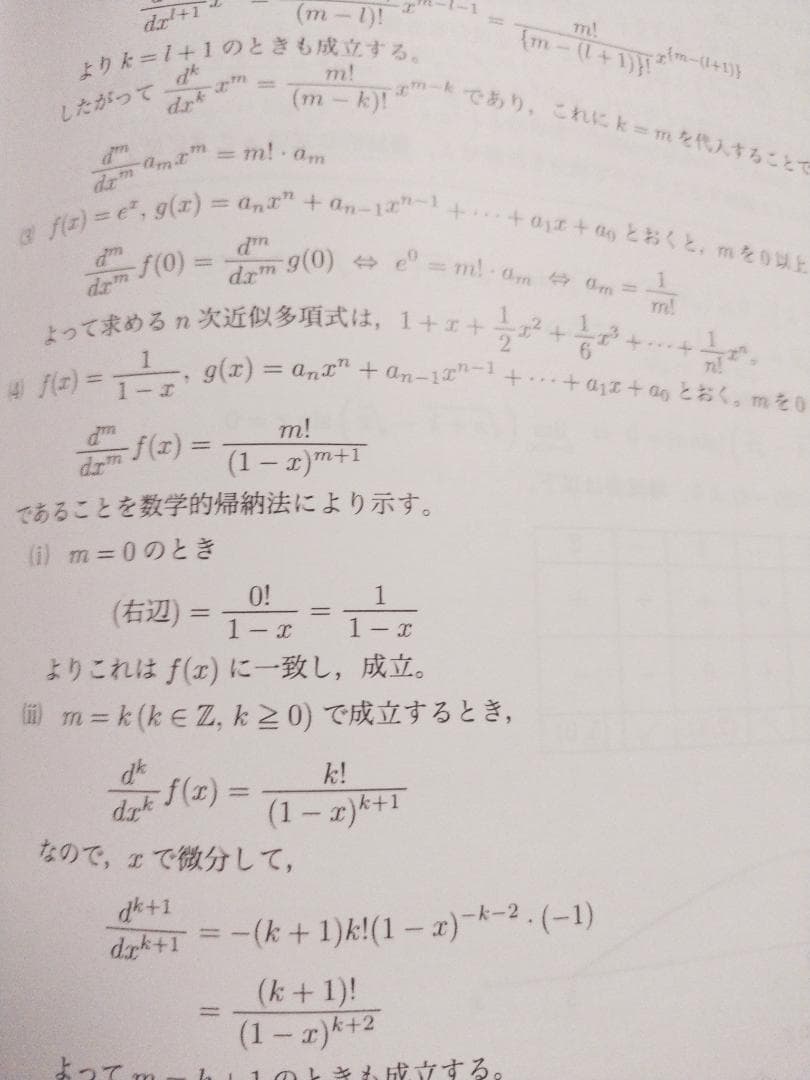 dx^{l+1} (m − l)! x^{m−l−1} = \frac{m!}{\{m − (l + 1)\}!} x^{\{m−(l+1)\}}
より k = l + 1 のときも成立する。
したがって \frac{d^k}{dx^k} x^m = \frac{m!}{(m − k)!} x^{m−k} であり，これに k = m を代入することで
\frac{d^m}{dx^m} a_m x^m = m! · a_m
(3) f(x) = e^x, g(x) = a_n x^n + a_{n−1} x^{n−1} + ··· + a_1 x + a_0 とおくと，m を 0 以上
\frac{d^m}{dx^m} f(0) = \frac{d^m}{dx^m} g(0) ⇔ e^0 = m! · a_m ⇔ a_m = \frac{1}{m!}
よって求める n 次近似多項式は，1 + x + \frac{1}{2} x^2 + \frac{1}{6} x^3 + ··· + \frac{1}{n!} x^n。
(4) f(x) = \frac{1}{1 − x}, g(x) = a_n x^n + a_{n−1} x^{n−1} + ··· + a_1 x + a_0 とおく。m を 0
\frac{d^m}{dx^m} f(x) = \frac{m!}{(1 − x)^{m+1}}
であることを数学的帰納法により示す。
(i) m = 0 のとき
(右辺) = \frac{0!}{1 − x} = \frac{1}{1 − x}
よりこれは f(x) に一致し，成立。
(ii) m = k (k ∈ ℤ, k ≧ 0) で成立するとき，
\frac{d^k}{dx^k} f(x) = \frac{k!}{(1 − x)^{k+1}}
なので，x で微分して，
\frac{d^{k+1}}{dx^{k+1}} = −(k + 1)k!(1 − x)^{−k−2} · (−1)
= \frac{(k + 1)!}{(1 − x)^{k+2}}
よって m = k + 1 のときも成立する。